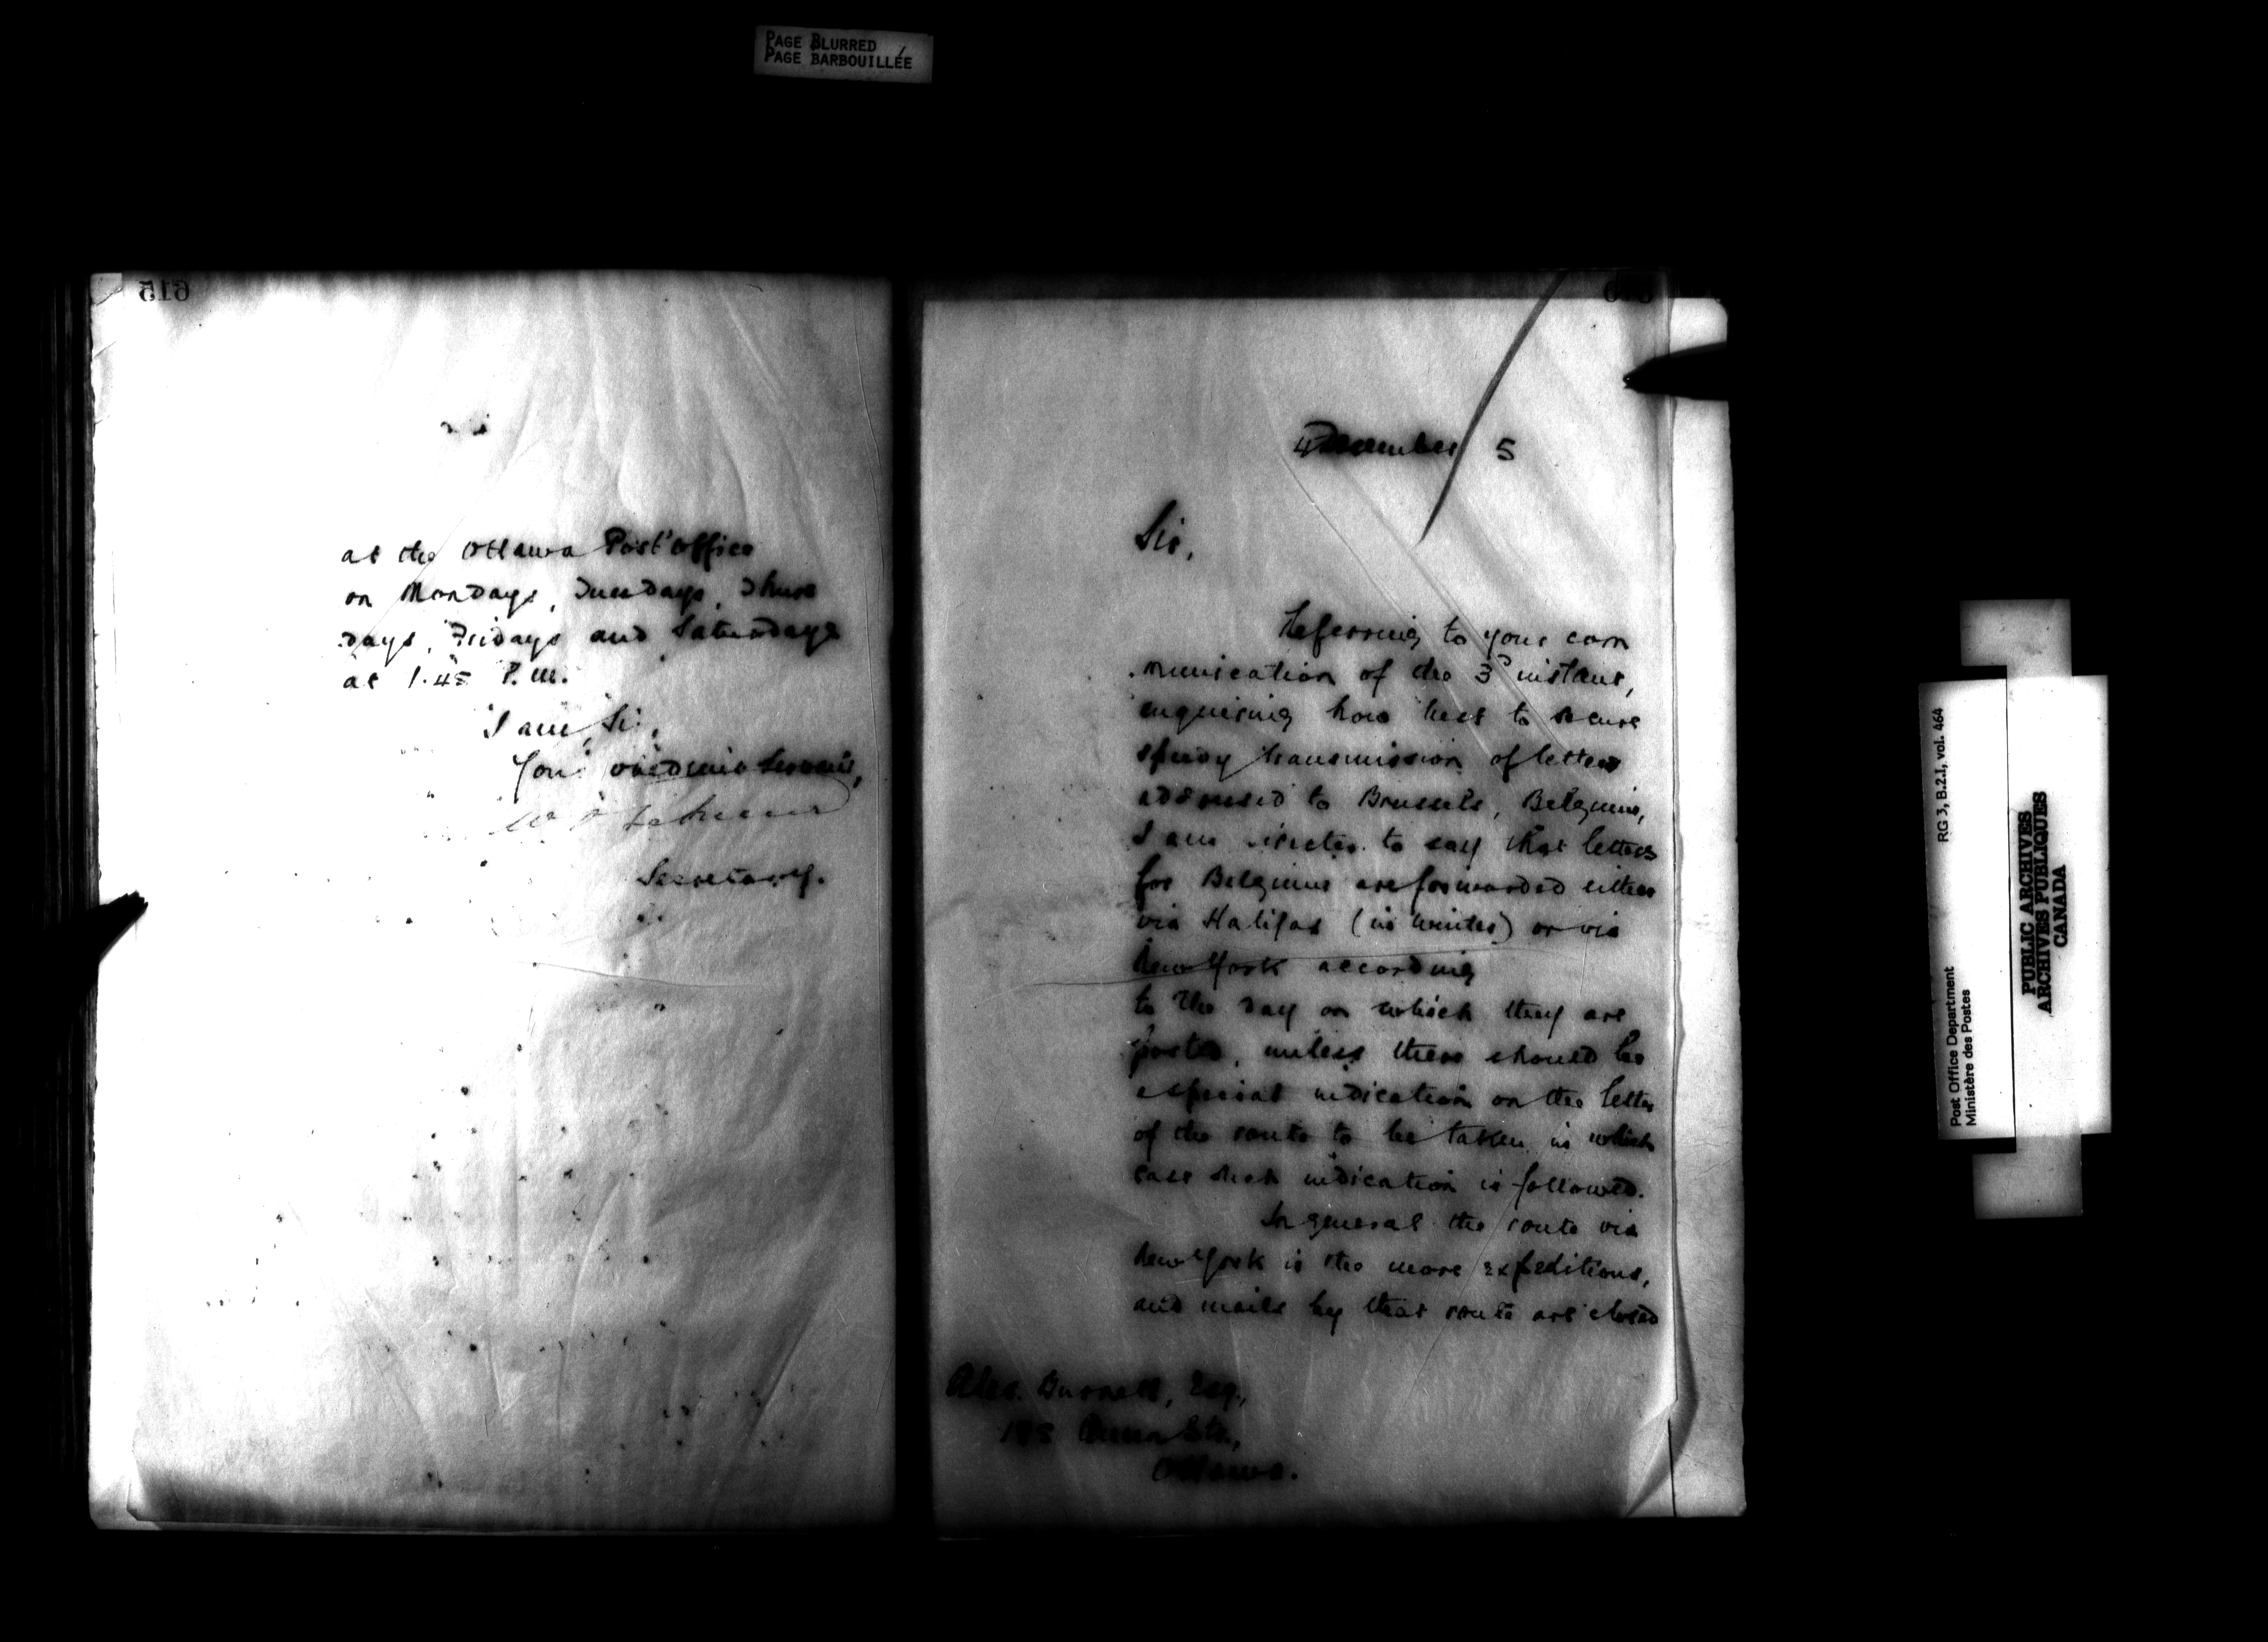 PAGE BLURRED
PAGE BARBOUILLÉE
615
at the Ottawa Post Office
on Mondays, Tuesdays, Thurs
days, Fridays and Saturdays
at 1.45 P.m.
I am, Sir,
Your obedient Servant,
Secretary.
4 December 5
Sir,
Referring to your com
munication of the 3d instant,
enquiring how best to secure
speedy transmission of letters
addressed to Brussels, Belgium,
I am directed to say that letters
for Belgium are forwarded either
via Halifax (in winter) or via
New York according
to the day on which they are
posted, unless there should be
especial indication on the letter
of the route to be taken in which
case such indication is followed.
In general the route via
New York is the more expeditious,
and mails by that route are closed
Alex. Burnett, Esq.,
Ottawa.
RG 3, B.2.1, vol. 464
Post Office Department
Ministère des Postes
PUBLIC ARCHIVES
ARCHIVES PUBLIQUES
CANADA